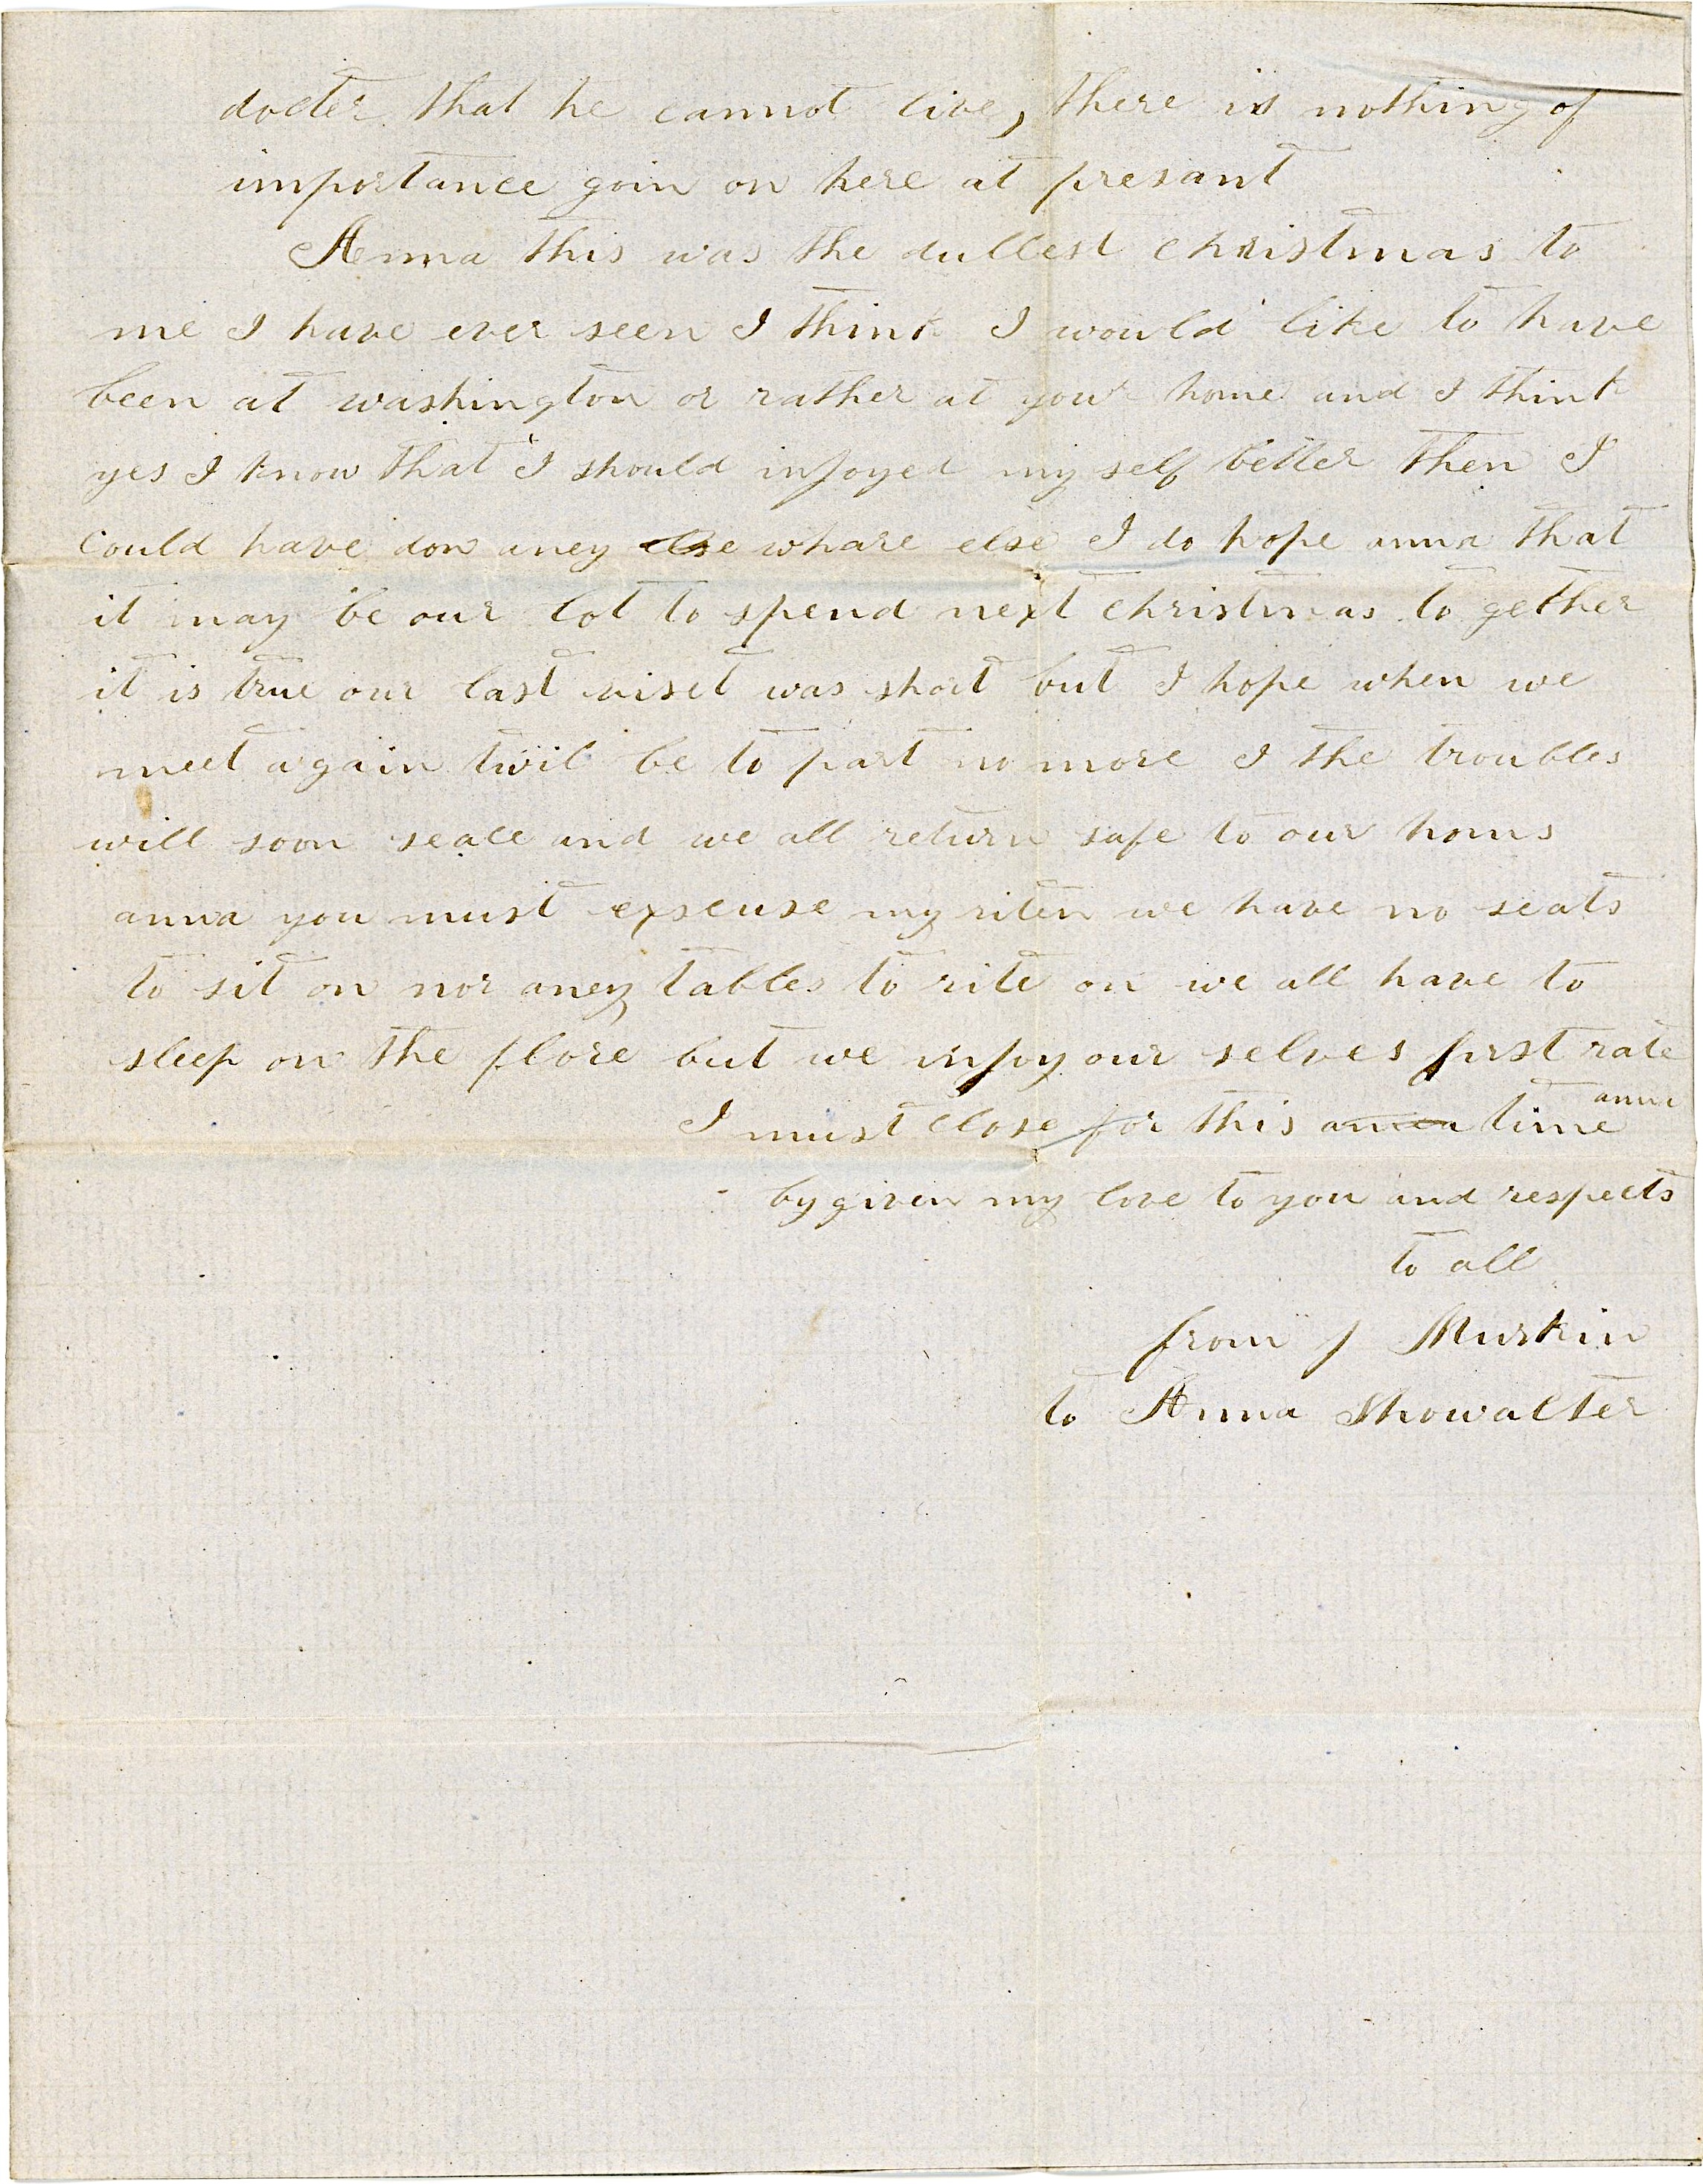 docter that he cannot live, there is nothing of
importance goin on here at presant
Anna this was the dullest christmas to
me I have ever seen I think I would like to have
been at washington or rather at your home and I think
yes I know that I should injoyed my self better then I
could have don aney else whare else I do hope anna that
it may be our lot to spend next christmas to gether
it is true our last viset was short but I hope when we
meet again twil be to part no more I the troubles
will soon seace and we all return safe to our homs
anna you must exscuse my riten we have no seats
to sit on nor aney tables to rite on we all have to
sleep on the flore but we injoy our selves first rate
I must close for this anna time anna
by given my love to you and respects
to all
from J Murkin
to Anna Showalter